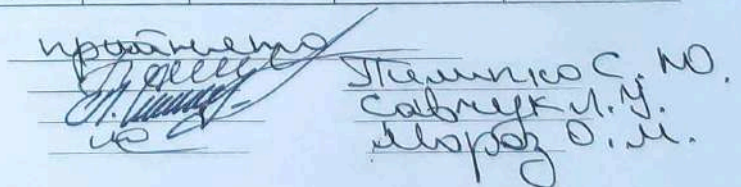 прийнято
Пилипко С. Ю.
Савчук Л. У.
Мороз О. М.